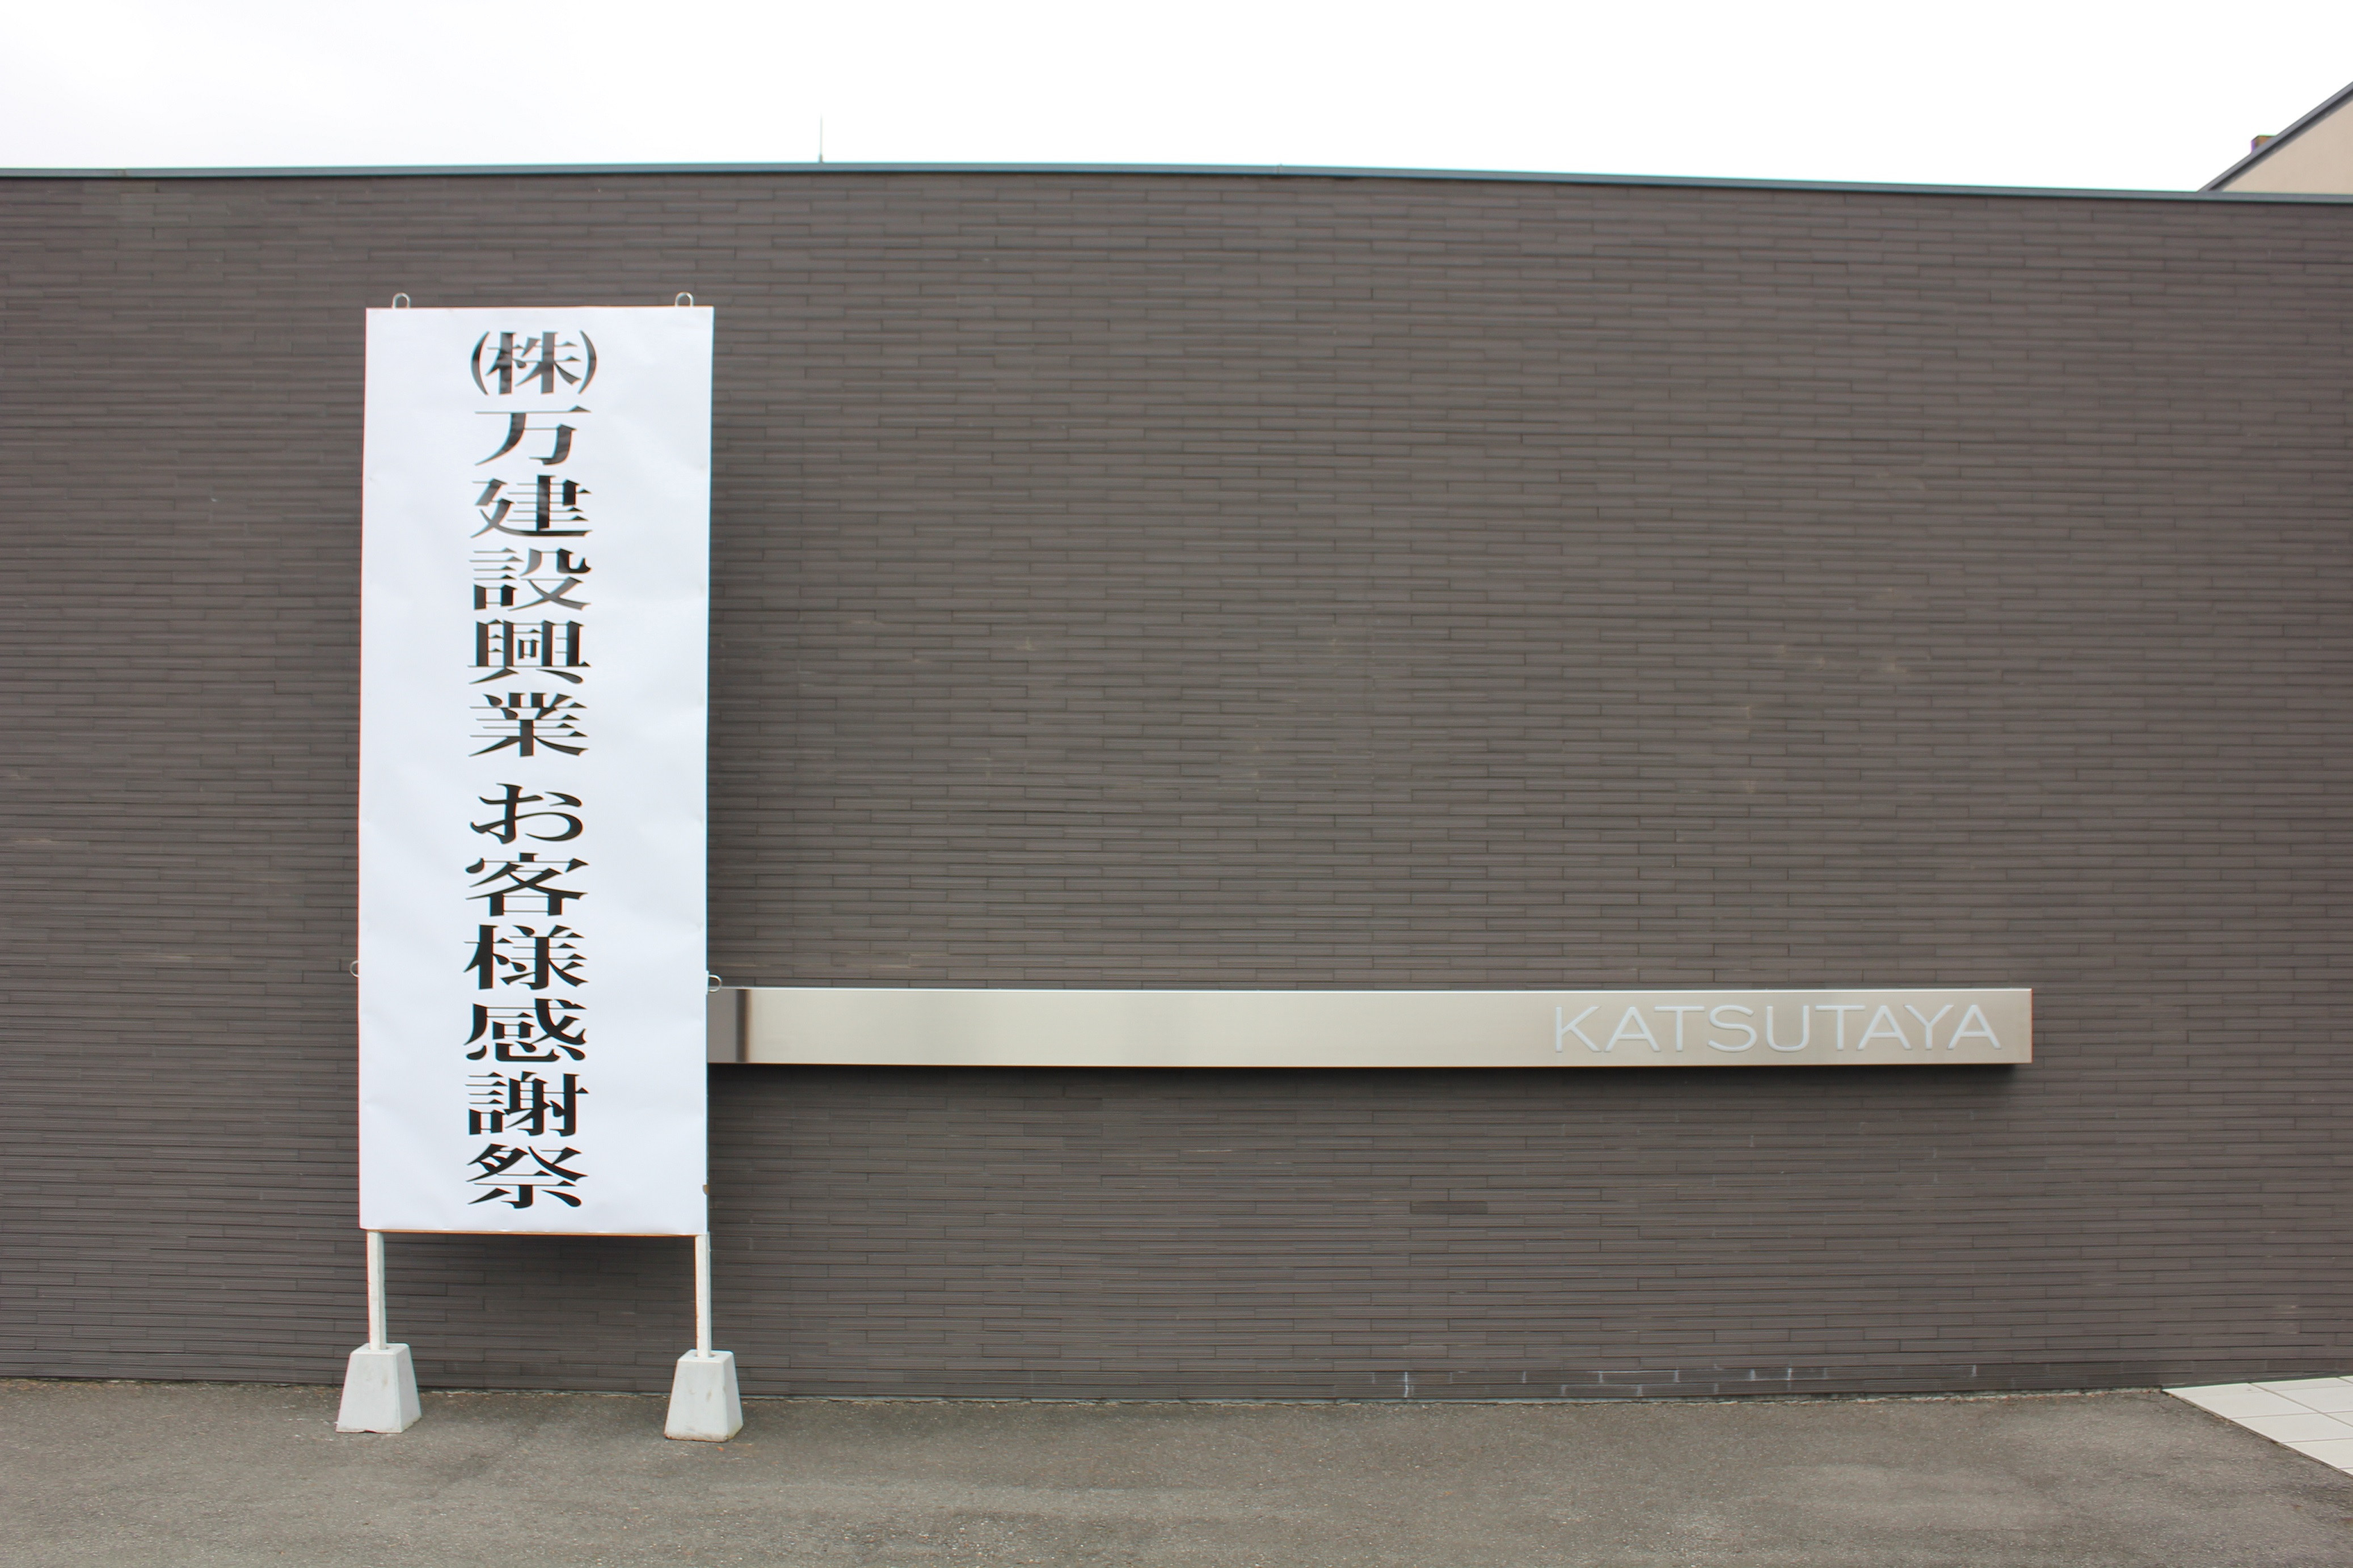 (株)万建設興業 お客様感謝祭
KATSUTAYA